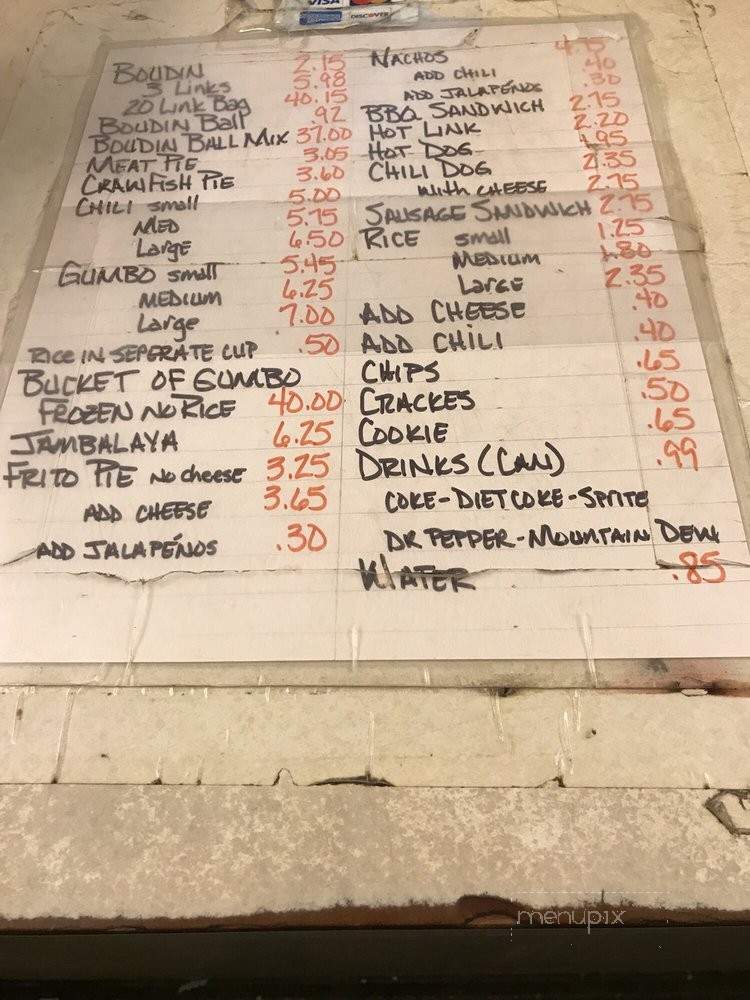 VISA
DISCOVER
BOUDIN 2.15
3 Links 5.98
20 Link Bag 40.15
BOUDIN Ball .92
BOUDIN BALL MIX 37.00
MEAT PIE 3.05
CRAWFISH PIE 3.60
CHILI small 5.00
MED 5.75
Large 6.50
GUMBO small 5.45
MEDIUM 6.25
Large 7.00
RICE IN SEPERATE CUP .50
BUCKET OF GUMBO
FROZEN NO RICE 40.00
JAMBALAYA 6.25
FRITO PIE No cheese 3.25
ADD CHEESE 3.65
ADD JALAPÉNOS .30
NACHOS 4.75
ADD CHILI .40
ADD JALAPÉNOS .30
BBQ SANDWICH 2.75
HOT LINK 2.20
HOT DOG 1.95
CHILI DOG 2.35
WITH CHEESE 2.75
SAUSAGE SANDWICH 2.75
RICE small 1.25
MEDIUM 1.80
LARGE 2.35
ADD CHEESE .40
ADD CHILI .40
CHIPS .65
CRACKES .50
COOKIE .65
DRINKS (CAN) .99
COKE-DIET COKE-SPRITE
DR PEPPER-MOUNTAIN DEW
WATER .85
menupix